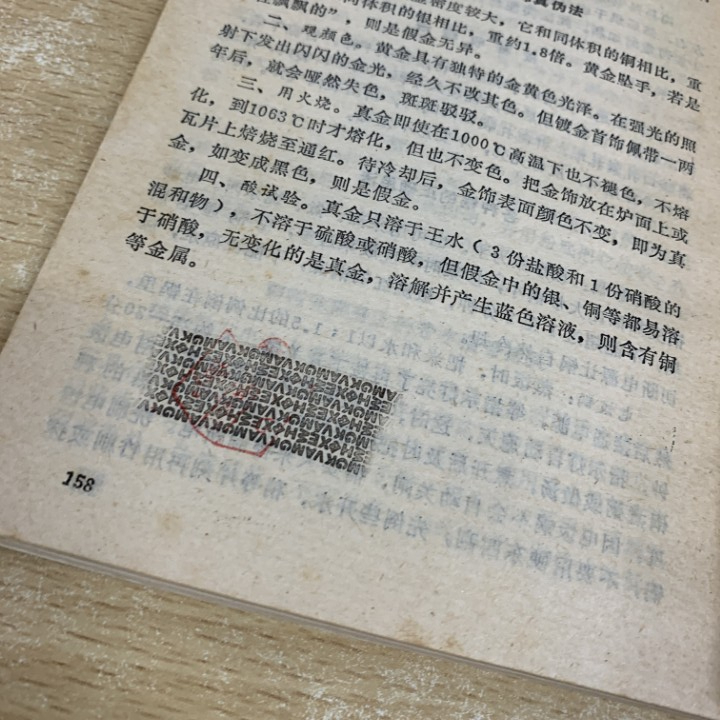 真伪法
密度较大，它和同体积的铜相比，重
同体积的银相比，重约1.8倍。黄金坠手，若是
轻飘飘的”，则是假金无异。
二、观颜色。黄金具有独特的金黄色光泽。在强光的照
射下发出闪闪的金光，经久不改其色。但镀金首饰佩带一两
年后，就会哑然失色，斑斑驳驳。
三、用火烧。真金即使在1000℃高温下也不褪色，不熔
化，到1063℃时才熔化，但也不变色。把金饰放在炉面上或
瓦片上焙烧至通红。待冷却后，金饰表面颜色不变，即为真
金，如变成黑色，则是假金。
四、酸试验。真金只溶于王水（3份盐酸和1份硝酸的
混和物），不溶于硫酸或硝酸，但假金中的银、铜等都易溶
于硝酸，无变化的是真金，溶解并产生蓝色溶液，则含有铜
等金属。
158